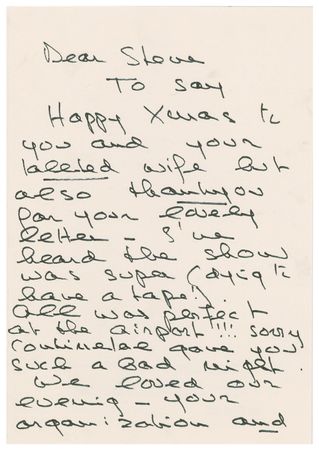 Dear Steve
To say
Happy Xmas to
you and your
talented wife but
also thankyou
for your lovely
letter – I've
heard the show
was super (dying to
have a tape!).
All was perfect
at the airport!!! sorry
Continental gave you
such a bad night.
We loved our
evening – your
organization and